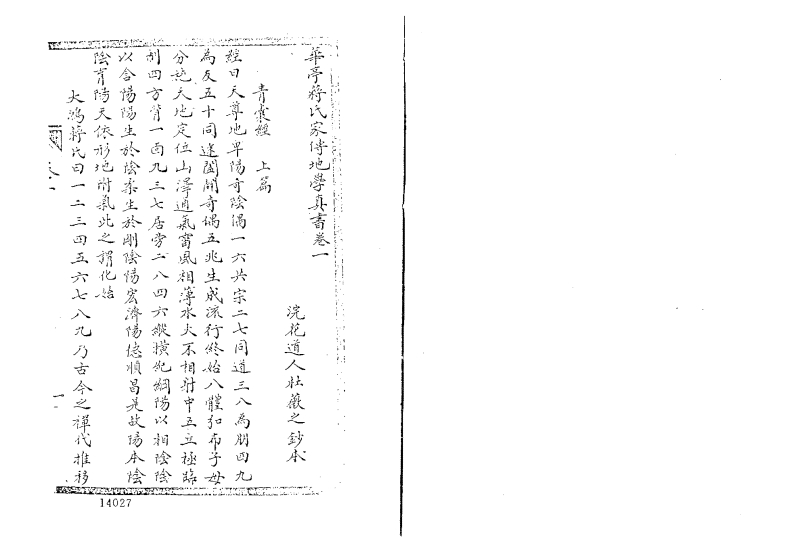 華亭蔣氏家傳地學真書卷一
浣花道人杜薇之鈔本
青囊經　上篇
經曰天尊地卑陽奇陰偶一六共宗二七同道三八為朋四九
為友五十同途闔闢奇偶五兆生成流行終始八體弘布子母
分施天地定位山澤通氣雷風相薄水火不相射中五立極臨
制四方背一面九三七居旁二八四六縱橫紀綱陽以相陰陰
以含陽陽生於陰柔生於剛陰陽宏濟陽德順昌是故陽本陰
陰育陽天依形地附氣此之謂化始
大鴻蔣氏曰一二三四五六七八九乃古今之禪代推移
一
14027